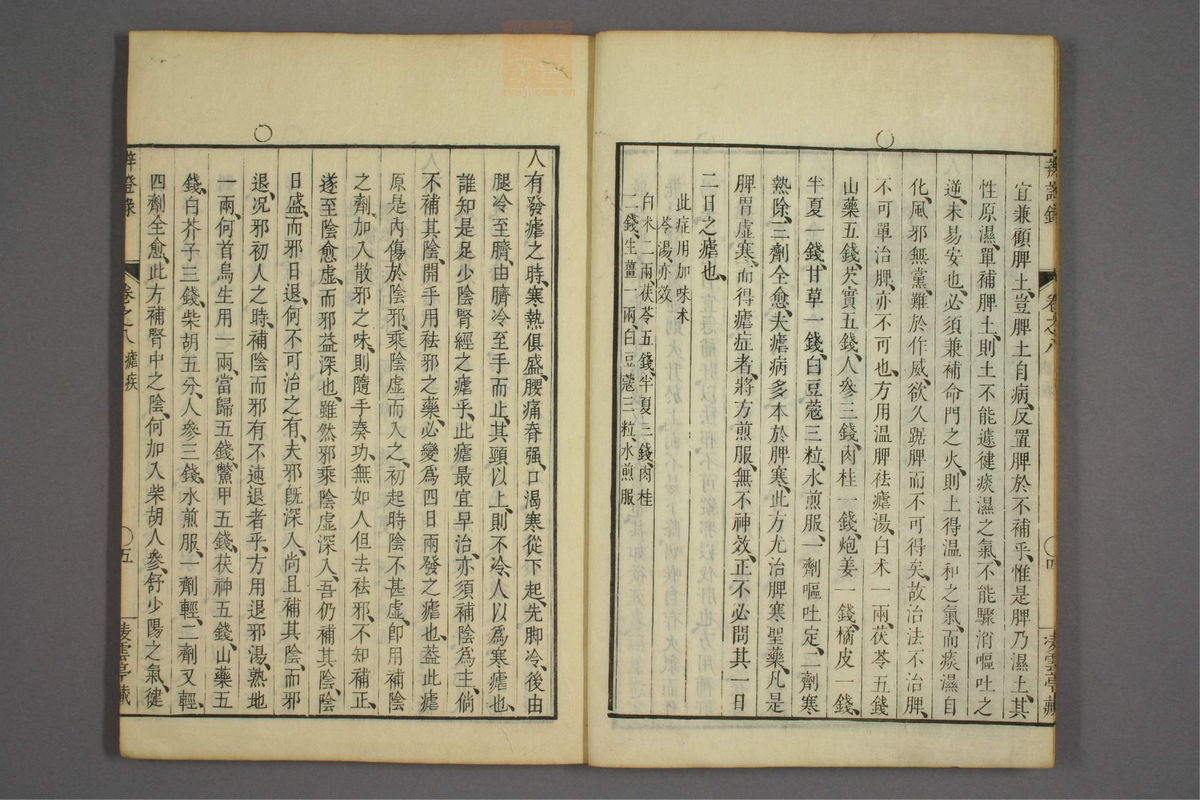 辨證錄 卷之八 〇四 凌雲亭藏
宜兼顧脾土、豈脾土自病、反置脾於不補乎、惟是脾乃濕土、其
性原濕、單補脾土、則土不能遽健、痰濕之氣、不能驟消、嘔吐之
逆、未易安也、必須兼補命門之火、則土得溫和之氣、而痰濕自
化、風邪無黨、難於作威、欲久踞脾而不可得矣、故治法不治脾、
不可單治脾、亦不可也、方用溫脾祛瘧湯、白朮一兩、茯苓五錢
山藥五錢、芡實五錢、人參三錢、肉桂一錢、炮姜一錢、橘皮一錢、
半夏一錢、甘草一錢、白豆蔻三粒、水煎服、一劑嘔吐定、二劑寒
熱除、三劑全愈、夫瘧病多本於脾寒、此方尤治脾寒聖藥、凡是
脾胃虛寒、而得瘧症者、將方煎服、無不神效、正不必問其一日
二日之瘧也、
此症用加味朮
苓湯、亦效
白朮二兩、茯苓五錢、半夏三錢、肉桂
二錢、生薑一兩、白豆蔻三粒、水煎服
人有發瘧之時、寒熱俱盛、腰痛脊强、口渴寒從下起、先脚冷、後由
腿冷至臍、由臍冷至手而止、其頸以上、則不冷、人以爲寒瘧也、
誰知是足少陰腎經之瘧乎、此瘧最宜早治、亦須補陰爲主、倘
不補其陰、開手用祛邪之藥、必變爲四日兩發之瘧也、蓋此瘧
原是内傷於陰、邪乘陰虛而入之、初起時陰不甚虛、卽用補陰
之劑、加入散邪之味、則隨手奏功、無如人但去祛邪、不知補正、
遂至陰愈虛、而邪益深也、雖然邪乘陰虛深入、吾仍補其陰、陰
日盛、而邪日退、何不可治之有、夫邪旣深入、尚且補其陰、而邪
退、况邪初入之時、補陰而邪有不速退者乎、方用退邪湯、熟地
一兩、何首烏生用一兩、當歸五錢、鱉甲五錢、茯神五錢、山藥五
錢、白芥子三錢、柴胡五分、人參三錢、水煎服、一劑輕、二劑又輕、
四劑全愈、此方補腎中之陰、何加入柴胡人參、舒少陽之氣、健
辨證錄 卷之八 瘧疾 〇五 凌雲亭藏